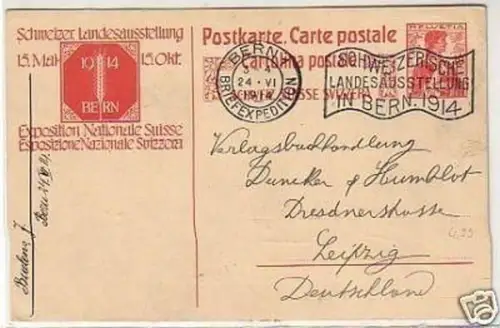 Schweizer. Landesausstellung
15. Mai 15. Okt.
1914
BERN
Exposition Nationale Suisse
Esposizione Nazionale Svizzera
Postkarte. Carte postale
Cartolina postale
HELVETIA
BERN 1
24·VI
1914
BRIEFEXPEDITION
SCHWEIZERISCHE
LANDESAUSSTELLUNG
IN BERN 1914
Verlagsbuchhandlung
Duncker & Humblot
Dresdnerstrasse
Leipzig
Deutschland